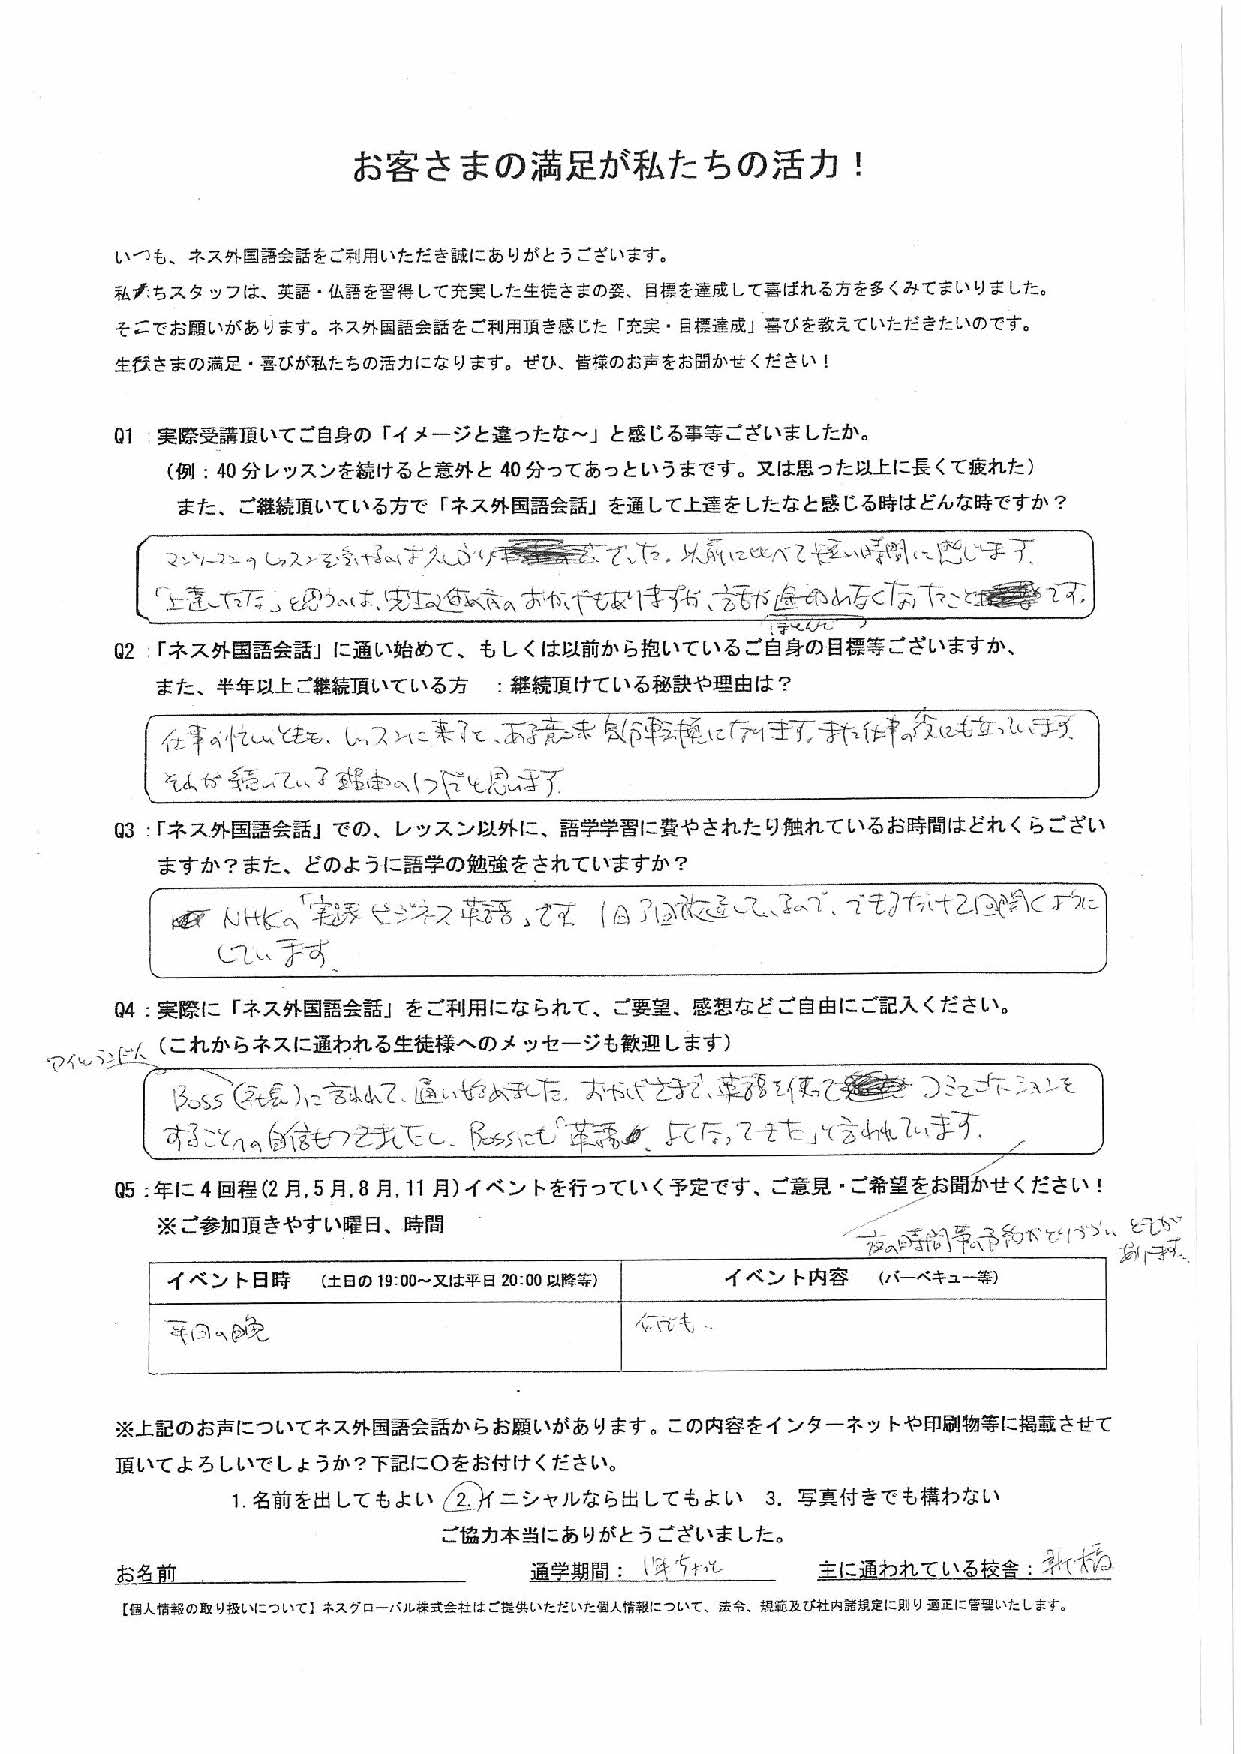 お客さまの満足が私たちの活力！
いつも、ネス外国語会話をご利用いただき誠にありがとうございます。
私たちスタッフは、英語・仏語を習得して充実した生徒さまの姿、目標を達成して喜ばれる方を多くみてまいりました。
そこでお願いがあります。ネス外国語会話をご利用頂き感じた「充実・目標達成」喜びを教えていただきたいのです。
生徒さまの満足・喜びが私たちの活力になります。ぜひ、皆様のお声をお聞かせください！
Q1 実際受講頂いてご自身の「イメージと違ったな～」と感じる事等ございましたか。
（例：40分レッスンを続けると意外と40分ってあっというまです。又は思った以上に長くて疲れた）
また、ご継続頂いている方で「ネス外国語会話」を通して上達をしたなと感じる時はどんな時ですか？
マンツーマンのレッスンを受けるのは久しぶりでした。以前に比べて短い時間に感じます。
「上達したな」と思うのは、先生の進め方のおかげでもありますが、言話が途切れなくなったことです。
ほとんど
Q2 :「ネス外国語会話」に通い始めて、もしくは以前から抱いているご自身の目標等ございますか、
また、半年以上ご継続頂いている方 :継続頂けている秘訣や理由は？
仕事が忙しいときも、レッスンに来ると、ある意味気分転換になります。また仕事の役にも立っています。
それが続いている理由の1つだと思います。
Q3 :「ネス外国語会話」での、レッスン以外に、語学学習に費やされたり触れているお時間はどれくらござい
ますか？また、どのように語学の勉強をされていますか？
NHKの「実践ビジネス英語」です。1日3回放送しているので、できるだけ2回聞くように
しています。
Q4 :実際に「ネス外国語会話」をご利用になられて、ご要望、感想などご自由にご記入ください。
（これからネスに通われる生徒様へのメッセージも歓迎します）
アイルランド人
Boss（社長）に言われて、通い始めました。おかげさまで、英語を使ってコミュニケーションを
することへの自信もつきましたし、Bossにも「英語、よくなってきた」と言われています。
Q5 :年に4回程(2月,5月,8月,11月)イベントを行っていく予定です、ご意見・ご希望をお聞かせください！
※ご参加頂きやすい曜日、時間
夜の時間帯の予約がとりづらいときが
あります。
イベント日時 （土日の19:00～又は平日20:00以降等） イベント内容 （バーベキュー等）
平日の晩 何でも。
※上記のお声についてネス外国語会話からお願いがあります。この内容をインターネットや印刷物等に掲載させて
頂いてよろしいでしょうか？下記に〇をお付けください。
1.名前を出してもよい 2.イニシャルなら出してもよい 3. 写真付きでも構わない
ご協力本当にありがとうございました。
お名前 通学期間：1年ちょっと 主に通われている校舎：新橋
【個人情報の取り扱いについて】ネスグローバル株式会社はご提供いただいた個人情報について、法令、規範及び社内諸規定に則り適正に管理いたします。